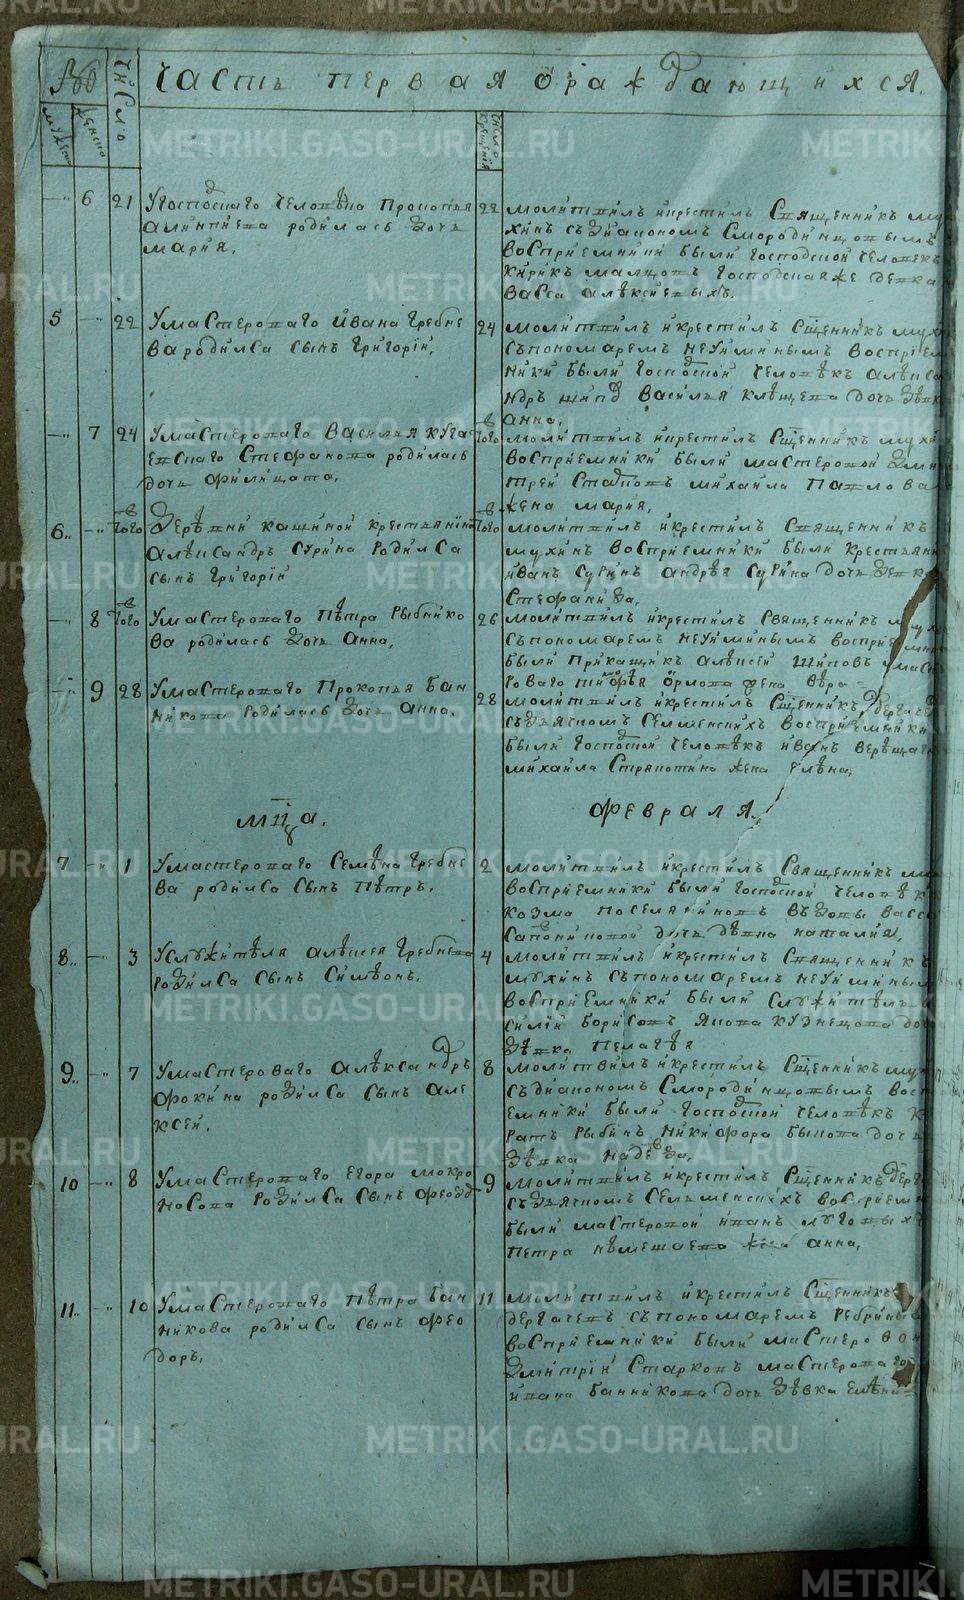 Часть первая о раждающихся.
Число
мужеска
женска
число крещения
6
21
У господскаго человѣка Прокопья
родилась дочь
Мария.
22
молитвилъ и крестилъ Священникъ му
хинъ съ диакономъ Смородинцовымъ
восприемники были господской человекъ
Кирикъ малцовъ господская же девка
васса алѣксиевыхъ.
5
22
У мастероваго ивана гребне
ва родился сынъ григорiй,
24
молитвилъ и крестилъ Сщенникъ мухи
съ пономаремъ неуйминымъ восприем
ники были господской человѣкъ алѣкса
ндръ василья клещева дочь дѣвк
анна,
7
24
У мастероваго василья куга
евскаго Стефанова родилась
дочь филицата,
в того
молитвилъ и крестилъ Сщенникъ мухи
восприемники были мастеровой дми
трей михайла павлова
жена мария,
6
в того
Деревни кашиной крестьянина
алѣксандръ сурина родился
сынъ григорiй
в того
молитвилъ и крестилъ Священникъ
мухинъ восприемники были крестьянин
иванъ суринъ андрѣя сурина дочь девк
Стефанида,
8
в того
У мастероваго Пѣтра рыбнико
ва родилась дочь анна,
26
молитвилъ и крестилъ Священникъ мухи
съ пономаремъ неуйминымъ восприемни
были прикащикъ алѣксѣй шиповъ у маст
роваго жена вѣра
9
28
У мастероваго Прокопья бан
никова родилась дочь анна.
28
молитвилъ и крестилъ Сщенникъ дергаче
съ дьячкомъ Селменскихъ восприемники
были господской человѣкъ иванъ верѣщаги
михайла Стряпотина жена елѣна,
мца февраля.
7
1
У мастероваго Семѣна гребне
ва родился сынъ Пѣтръ,
2
молитвилъ и крестилъ Священникъ му
восприемники были господской человѣкъ
козма поселяниновъ вдовы вассы
дочь дѣвка наталия,
8
3
У служителя алѣксея гребнева
родился сынъ Симеонъ,
4
молитвилъ и крестилъ Священникъ
мухинъ съ пономаремъ неуйминым
восприемники были служитель
силiй борисовъ якова кузнецова доч
дѣвка пелагѣя
9
7
У мастероваго алѣксандръ
фокина родился сынъ але
ксей.
8
молитвилъ и крестилъ Сщенникъ мух
съ диакономъ Смородинцовымъ восп
емники были господской человѣкъ к
ратъ рыбинъ никифора быкова дочь
дѣвка надѣжда,
10
8
У мастероваго егора мокро
носова родился сынъ феодо
9
молитвилъ и крестилъ Сщенникъ дерга
съ дьячкомъ Селменскихъ восприемн
были мастеровой иванъ луговыхъ
петра нѣмешаева жена анна,
11
10
У мастероваго пѣтра бан
никова родился сынъ фео
доръ,
11
молитвилъ и крестилъ Сщенникъ
дергачевъ съ пономаремъ ребрины
восприемники были мастеровой
дмитрiй старковъ мастероваго
ивана банникова дочь дѣвка елѣна
METRIKI.GASO-URAL.RU